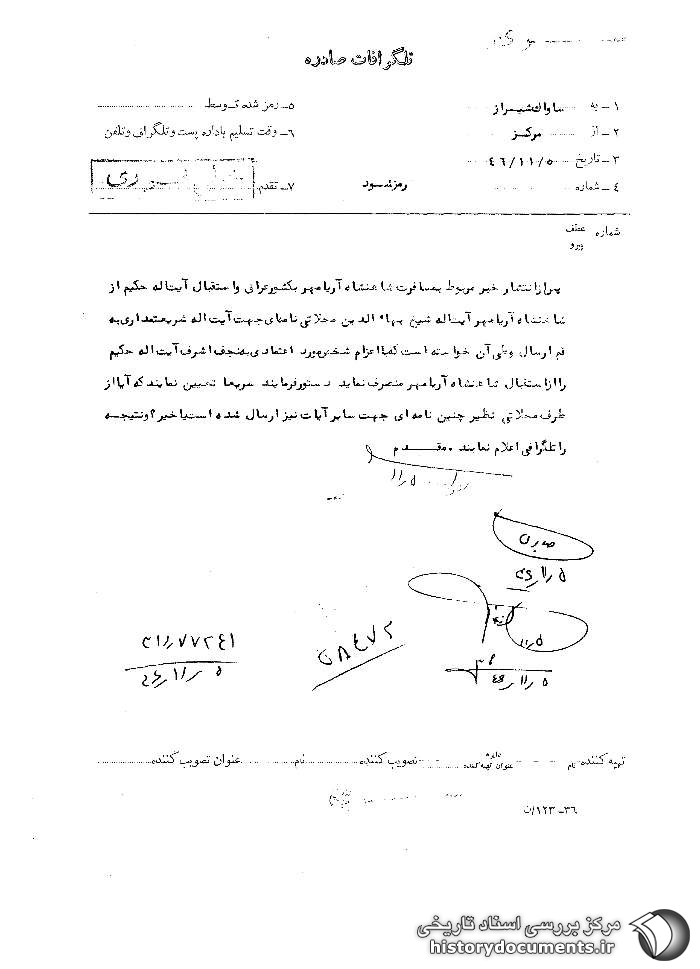 تلگرافات صادره
۱ــ به ساواك شیراز
۲ــ از مركز
۳ــ تاریخ ۴۶/۱۱/۵
۴ــ شماره رمز شود
۵ــ رمز شده توسط
۶ــ وقت تسلیم باداره پست و تلگراف و تلفن
۷ــ تقدم
شماره عطف پیرو
پس از انتشار خبر مربوط بمسافرت شاهنشاه آریامهر بكشور عراق و استقبال آیت اله حكیم از
شاهنشاه آریامهر آیت اله شیخ بهاء الدین محلاتی نامه‌ای جهت آیت اله شریعتمداری به
قم ارسال و طی آن خواسته است كه با اعزام شخص مورد اعتمادی به نجف اشرف آیت اله حكیم
را از استقبال شاهنشاه آریامهر منصرف نماید دستور فرمایند سریعا تعیین نمایند كه آیا از
طرف محلاتی نظیر چنین نامه ای جهت سایر آیات نیز ارسال شده است یا خیر؟ و نتیجه
را تلگرافی اعلام نمایند. مقدم
۵ر۱۱
۵ر۱۱ر۴۶
۵ر۱۱
۵ر۱۱ر۴۶
۵۸۴۷۲
۵ر۱۱ر۴۶
تهیه كننده نام عنوان تهیه كننده تصویب كننده نام عنوان تصویب كننده
۳۶ــ۱۲۳/ن
مرکز بررسی اسناد تاریخی
historydocuments.ir